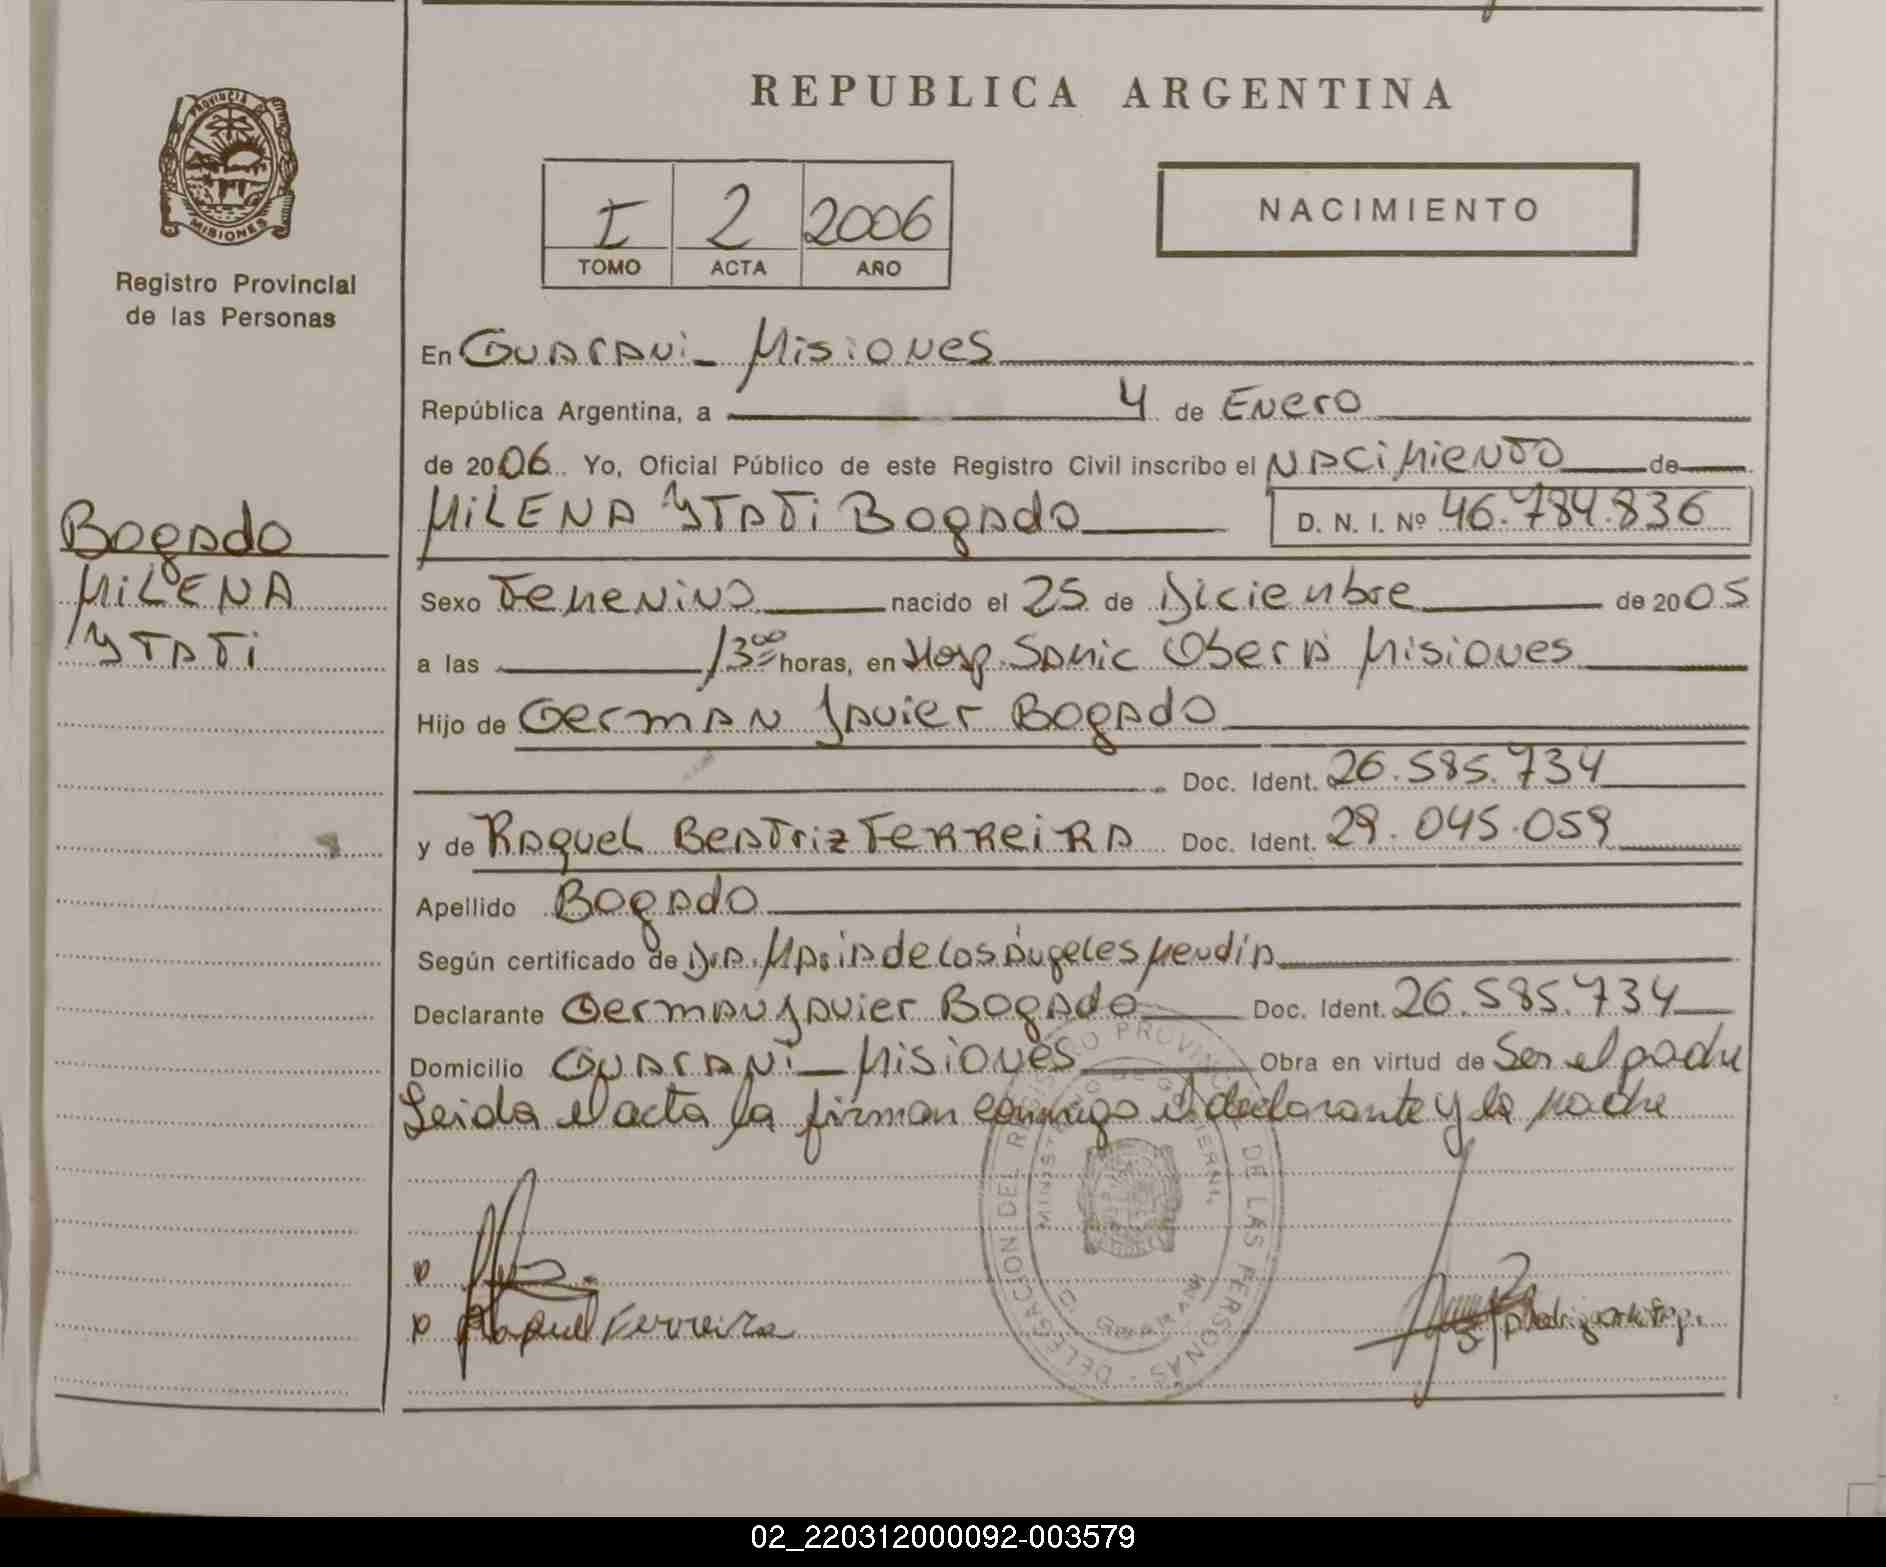 REPUBLICA ARGENTINA
PROVINCIA DE
MISIONES
Registro Provincial
de las Personas
I 2 2006
TOMO ACTA AÑO
NACIMIENTO
Bogado
MILENA
YTATI
En Guarani - Misiones
República Argentina, a 4 de Enero
de 2006 Yo, Oficial Público de este Registro Civil inscribo el NACIMIENTO de
MILENA YTATI Bogado D. N. I. Nº 46.784.836
Sexo Femenino nacido el 25 de Diciembre de 2005
a las 13 00 horas, en Hosp. Samic Oberá Misiones
Hijo de German Javier Bogado
Doc. Ident. 26.585.734
y de Raquel Beatriz Ferreira Doc. Ident. 29.045.059
Apellido Bogado
Según certificado de Dra. Maria de Los Angeles Mendin
Declarante German Javier Bogado Doc. Ident. 26.585.734
Domicilio Guarani - Misiones Obra en virtud de Ser el padre
Leida el acta la firman conmigo el declarante y la madre
DELEGACION DEL REGISTRO PROVINCIAL DE LAS PERSONAS
Raquel Ferreira
02_220312000092-003579